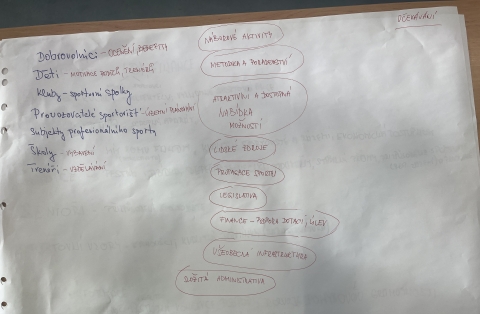 OČEKÁVÁNÍ
Dobrovolníci - OCENĚNÍ, BENEFITA
Děti - MOTIVACE RODIČŮ, TRENÉRŮ
Kluby - sportovní spolky
Provozovatelé sportovišť
Subjekty profesionálního sportu
Školy - VYBAVENÍ
Trenéři - VZDĚLÁVÁNÍ
NÁBOROVÉ AKTIVITY
METODIKA A PORADENSTVÍ
ATRAKTIVNÍ A DOSTUPNÁ
NABÍDKA
MOŽNOSTÍ
LIDSKÉ ZDROJE
PROPAGACE SPORTU
LEGISLATIVA
FINANCE - PODPORA DOTACÍ, ÚLEV
VŠEOBECNÁ INFRASTRUKTURA
SLOŽITÁ ADMINISTRATIVA